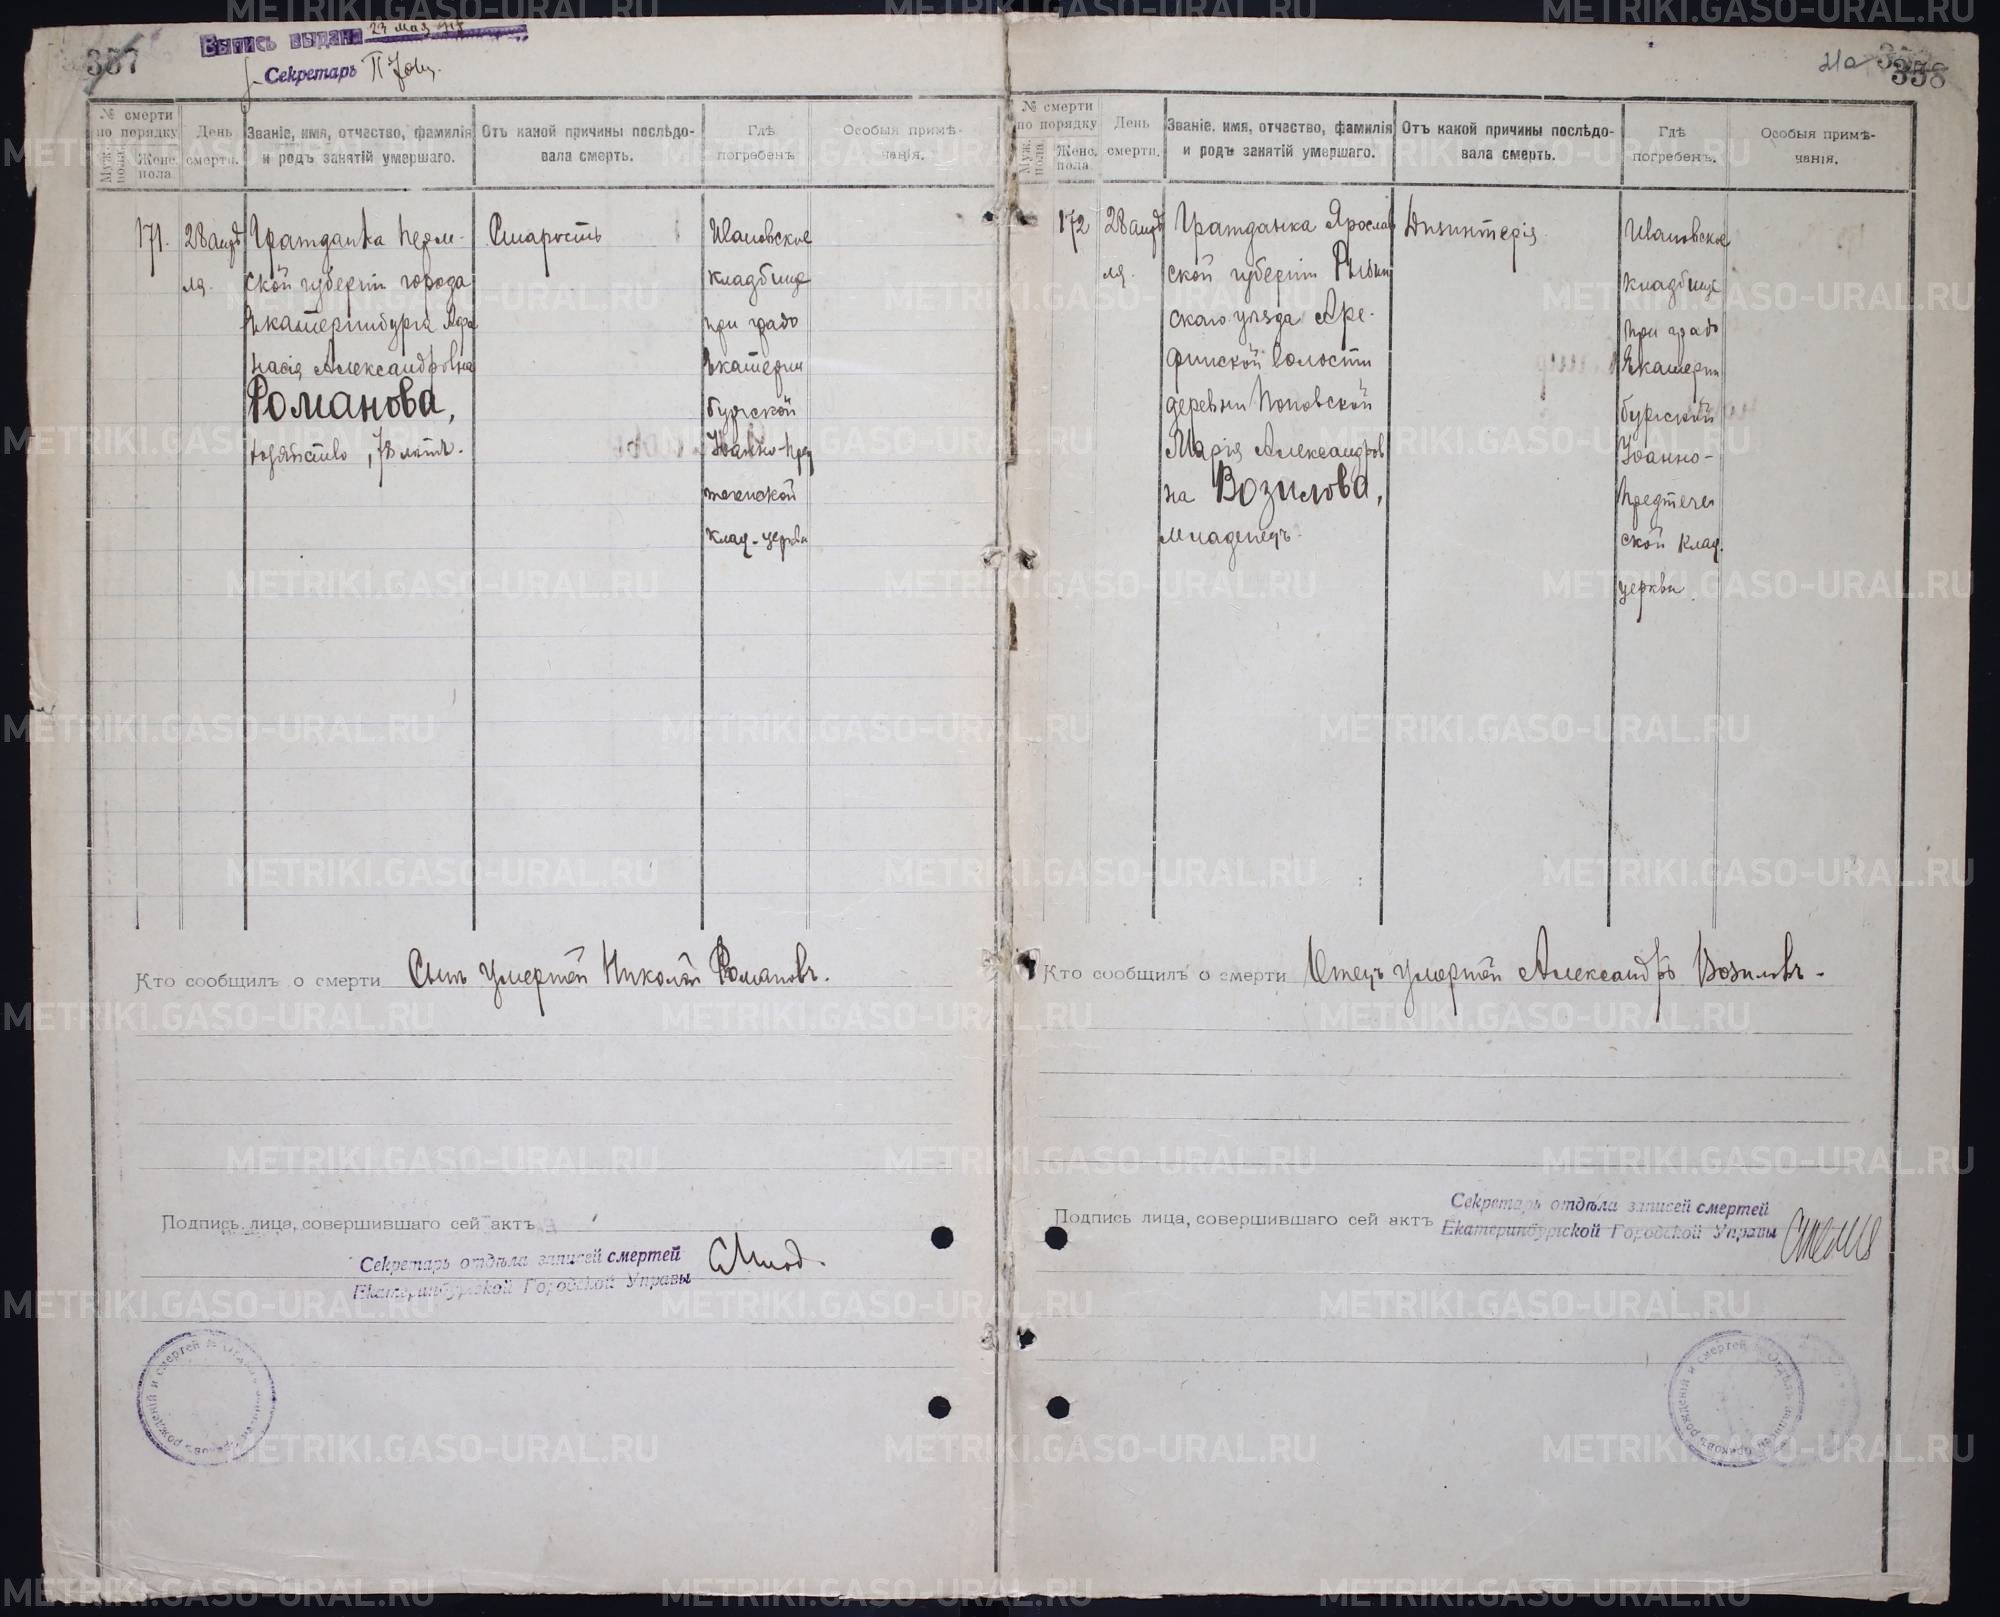 357
Выпись выдана 23 мая
Секретарь
№ смерти по порядку
Муж. пола.
Женс. пола
День смерти.
Званіе, имя, отчество, фамилія и родъ занятій умершаго.
Отъ какой причины послѣдовала смерть.
Гдѣ погребенъ
Особыя примѣчанія.
171.
28 апрѣ
ля.
Гражданка Перм-
ской губерніи города
Екатеринбурга Афа
насія Александровна
Романова,
хозяйство, 78 лѣтъ.
Старость
Ивановское
кладбище
при градо
Екатерин
бургской
Іоанно-Пред
теченской
клад-церкви
Кто сообщилъ о смерти Сынъ умершей Николай Романовъ.
Подпись лица, совершившаго сей актъ
Секретарь отдѣла записей смертей
Екатеринбургской Городской Управы
358
№ смерти по порядку
Муж. пола.
Женс. пола
День смерти.
Званіе, имя, отчество, фамилія и родъ занятій умершаго.
Отъ какой причины послѣдовала смерть.
Гдѣ погребенъ.
Особыя примѣчанія.
172
28 апрѣ
ля.
Гражданка Ярослав
ской губерніи Рыбин
скаго уѣзда Аре-
финской волости
деревни Поповской
Марія Александров
на Возилова,
младенецъ.
Дизинтерія.
Ивановское
кладбище
при градо
Екатерин
бургской
Іоанно-
Предтечен
ской клад.
церкви.
Кто сообщилъ о смерти Отецъ умершей Александръ Возиловъ.
Подпись лица, совершившаго сей актъ
Секретарь отдѣла записей смертей
Екатеринбургской Городской Управы
METRIKI.GASO-URAL.RU